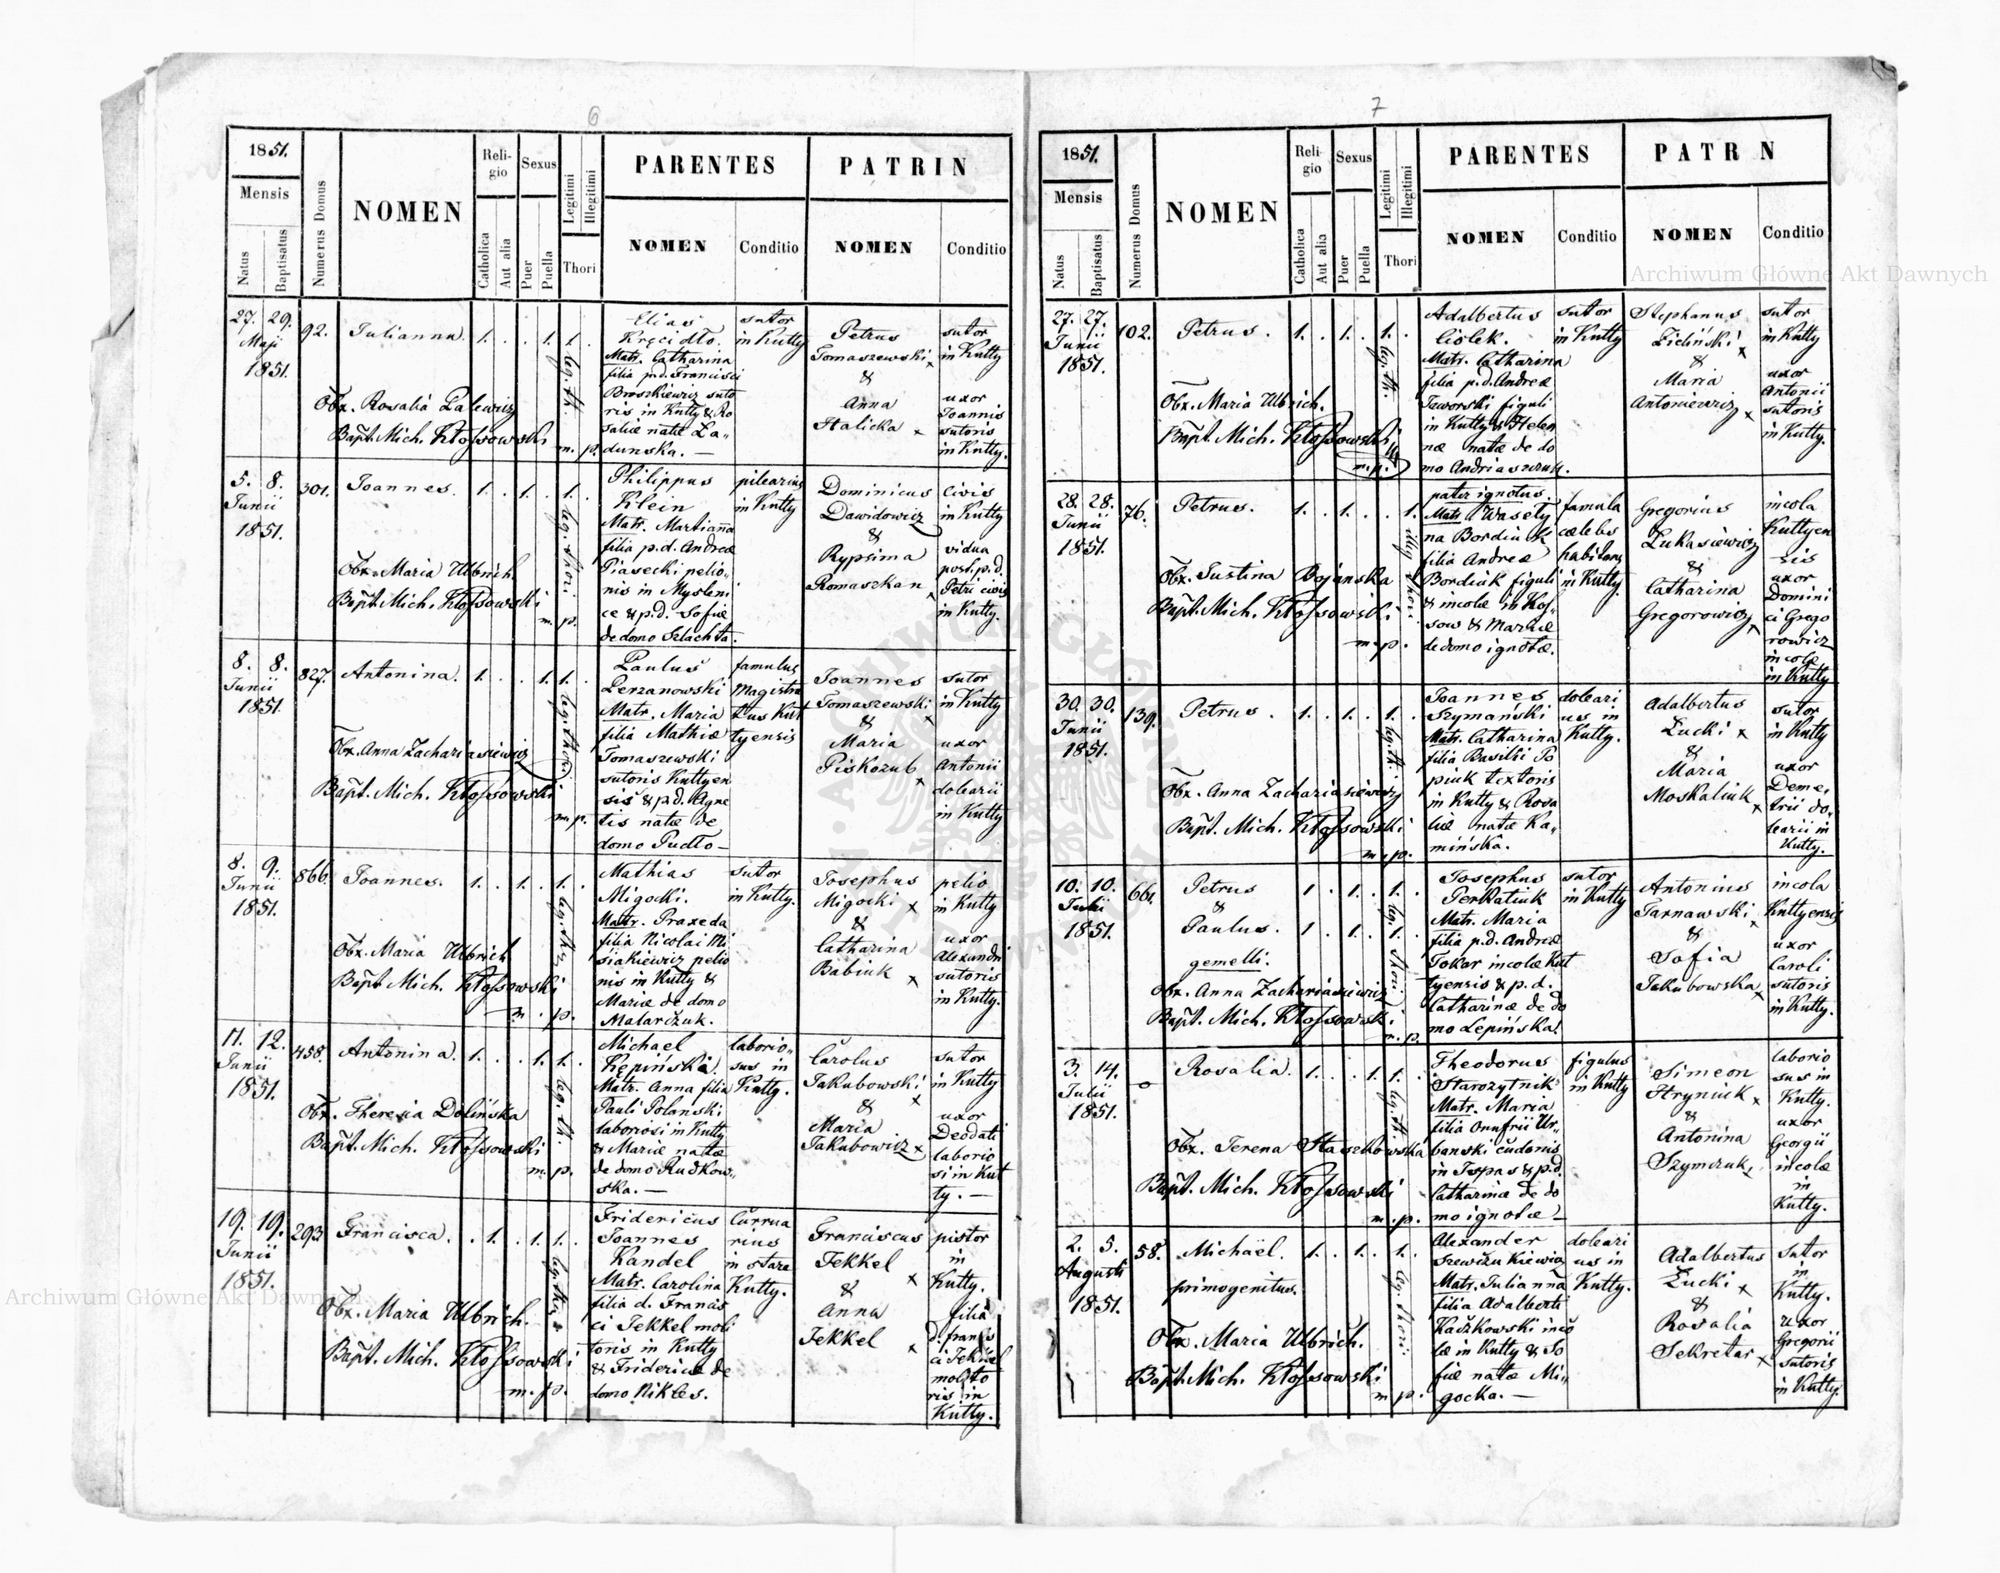 6
1851.
Mensis
Natus
Baptisatus
Numerus Domus
NOMEN
Religio
Catholica
Aut alia
Sexus
Puer
Puella
Legitimi
Illegitimi
Thori
PARENTES
NOMEN
Conditio
PATRIN
NOMEN
Conditio
27. 29.
Maji
1851.
92.
Julianna.
1. . . 1. 1. .
leg. th.
Obx. Rosalia Zalewicz
Bapt. Mich. Kłossowski
m. p.
Elias
Kręcidło.
Matr. Catharina
filia p.d. Francisci
Broszkiewicz suto
ris in Kutty & Ro
saliæ natæ Ła„
dunska. —
sutor
in Kutty
Petrus
Tomaszewski x
&
Anna
Halicka x
sutor
in Kutty
uxor
Joannis
sutoris
in Kutty.
5. 8.
Junii
1851.
301.
Joannes.
1. . 1. . 1. .
leg. thori.
Obx. Maria Ulbrich.
Bapt. Mich. Kłossowski
m. p.
Philippus
Klein
Matr. Marianna
filia p.d. Andreæ
Piasecki pelio„
nis in Mysleni
ce & p.d. Sofiæ
de domo Szlachta.
pilearius
in Kutty
Dominicus
Dawidowicz
&
Rypsima
Romaszkan x
civis
in Kutty
vidua
post. p. d.
Petri civis
in Kutty.
8. 8.
Junii
1851.
827.
Antonina.
1. . . 1. 1. .
leg. thori
Obx. Anna Zachariasiewicz
Bapt. Mich. Kłossowski
m. p.
Paulus
Lerzanowski
Matr. Maria
filia Mathiæ
Tomaszewski
sutoris Kuttyen
sis & p.d. Agne
tis natæ de
domo Pudło —
famulus
Magistra
tus Kut
tyensis
Joannes
Tomaszewski x
&
Maria
Piskozub x
sutor
in Kutty
uxor
Antonii
dolearii
in Kutty
8. 9.
Junii
1851.
866.
Joannes.
1. . 1. . 1. .
leg. thori
Obx. Maria Ulbrich
Bapt. Mich. Kłossowski
m. p.
Mathias
Migocki.
Matr. Praxeda
filia Nicolai Mi
siakiewicz pelio
nis in Kutty &
Mariæ de domo
Malarczuk.
sutor
in Kutty.
Josephus
Migocki x
&
Catharina
Babiuk x
pelio
in Kutty
uxor
Alexandri
sutoris
in Kutty.
11. 12.
Junii
1851.
458.
Antonina.
1. . . 1. 1. .
leg. th.
Obx. Theresia Dolińska
Bapt. Mich. Kłossowski
m. p.
Michael
Kępiński.
Matr. Anna filia
Pauli Polański
laboriosi in Kutty
& Mariæ natæ
de domo Rudkow„
ska. —
laborio„
sus in
Kutty.
Carolus
Jakubowski x
&
Maria
Jakubowicz x
sutor
in Kutty
uxor
Deodati
laborio
si in Kut
ty. —
19. 19.
Junii
1851.
293
Francisca.
. 1. . 1. 1. .
leg. thori
Obx. Maria Ulbrich.
Bapt. Mich. Kłossowski
m. p.
Fridericus
Joannes
Kandel
Matr. Carolina
filia d. Francis
ci Jekkel moli
toris in Kutty
& Fridericæ de
domo Nikles.
Currua
rius
in stara
Kutty.
Franciscus
Jekkel x
&
Anna
Jekkel x
pistor
in
Kutty.
filia
d. Francis
ci Jekkel
molito
ris in
Kutty.
7
1851.
Mensis
Natus
Baptisatus
Numerus Domus
NOMEN
Religio
Catholica
Aut alia
Sexus
Puer
Puella
Legitimi
Illegitimi
Thori
PARENTES
NOMEN
Conditio
PATR N
NOMEN
Conditio
27. 27.
Junii
1851.
102.
Petrus.
1. . 1. . 1. .
leg. th.
Obx. Maria Ulbrich.
Bapt. Mich. Kłossowski
m. p.
Adalbertus
Ciołek.
Matr. Catharina
filia p.d. Andreæ
Jaworski figuli
in Kutty & Hele
næ natæ de do
mo Andriaszczuk.
sutor
in Kutty
Stephanus
Zieliński x
&
Maria
Antoniewicz x
sutor
in Kutty
uxor
Antonii
sutoris
in Kutty.
28. 28.
Junii
1851.
76.
Petrus.
1. . 1. . . 1.
illeg. thori
Obx. Justina Bojanska
Bapt. Mich. Kłossowski
m. p.
pater ignotus.
Matr. Wasely
na Bordiuk
filia Andreæ
Bordiuk figuli
& incolæ in Kos„
sow & Mariæ
de domo ignotæ.
famula
cælebs
habitans
in Kutty.
Gregorius
Łukasiewicz
&
Catharina
Gregorowicz x
incola
Kuttyen
sis
uxor
Domini
ci Grego
rowicz
incolæ
in Kutty
30. 30.
Junii
1851.
139.
Petrus.
1. . 1. . 1. .
leg. th.
Obx. Anna Zachariasiewicz
Bapt. Mich. Kłossowski
m. p.
Joannes
Szymański
Matr. Catharina
filia Basilii Po
piuk textoris
in Kutty & Rosa
liæ natæ Ka„
mińska.
doleari
us in
Kutty.
Adalbertus
Łucki x
&
Maria
Moskaliuk x
sutor
in Kutty
uxor
Deme„
trii do„
learii in
Kutty.
10. 10.
Julii
1851.
661.
Petrus
&
Paulus.
gemelli.
1 . 1. . 1. .
1 . 1. . 1. .
leg. thori
Obx. Anna Zachariasiewicz
Bapt. Mich. Kłossowski
m. p.
Josephus
Perkatiuk
Matr. Maria
filia p.d. Andreæ
Tokar incolæ Kut
tyensis & p. d.
Catharinæ de do
mo Lepińska.
sutor
in Kutty
Antonius
Tarnawski x
&
Sofia
Jakubowska x
incola
Kuttyensis
uxor
Caroli
sutoris
in Kutty.
3. 14.
Julii
1851.
o
Rosalia.
1. . . 1. 1. .
leg. th.
Obx. Terena Staszkowska
Bapt. Mich. Kłossowski
m. p.
Theodorus
Starozytnik
Matr. Maria
filia Onufrii Ur„
banski cudonis
in Jspas & p.d.
Catharinæ de do
mo ignotæ —
figulus
in Kutty
Simeon
Hryniuk x
&
Antonina
Szymczuk x
laborio
sus in
Kutty.
uxor
Georgii
incolæ
in
Kutty.
2. 5.
Augusti
1851.
58.
Michaël.
primogenitus.
1. . 1. . 1. .
leg. thori
Obx. Maria Ulbrich.
Bapt. Mich. Kłossowski
m. p.
Alexander
Szewczukiewicz
Matr. Julianna
filia Adalberti
Kaczkowski inco
læ in Kutty & So
fiæ natæ Mi„
gocka. —
doleari
us in
Kutty.
Adalbertus
Łucki x
&
Rosalia
Sekretar x
sutor
in
Kutty.
uxor
Gregorii
sutoris
in Kutty.
Archiwum Główne Akt Dawnych
Archiwum Główne Akt Dawnych